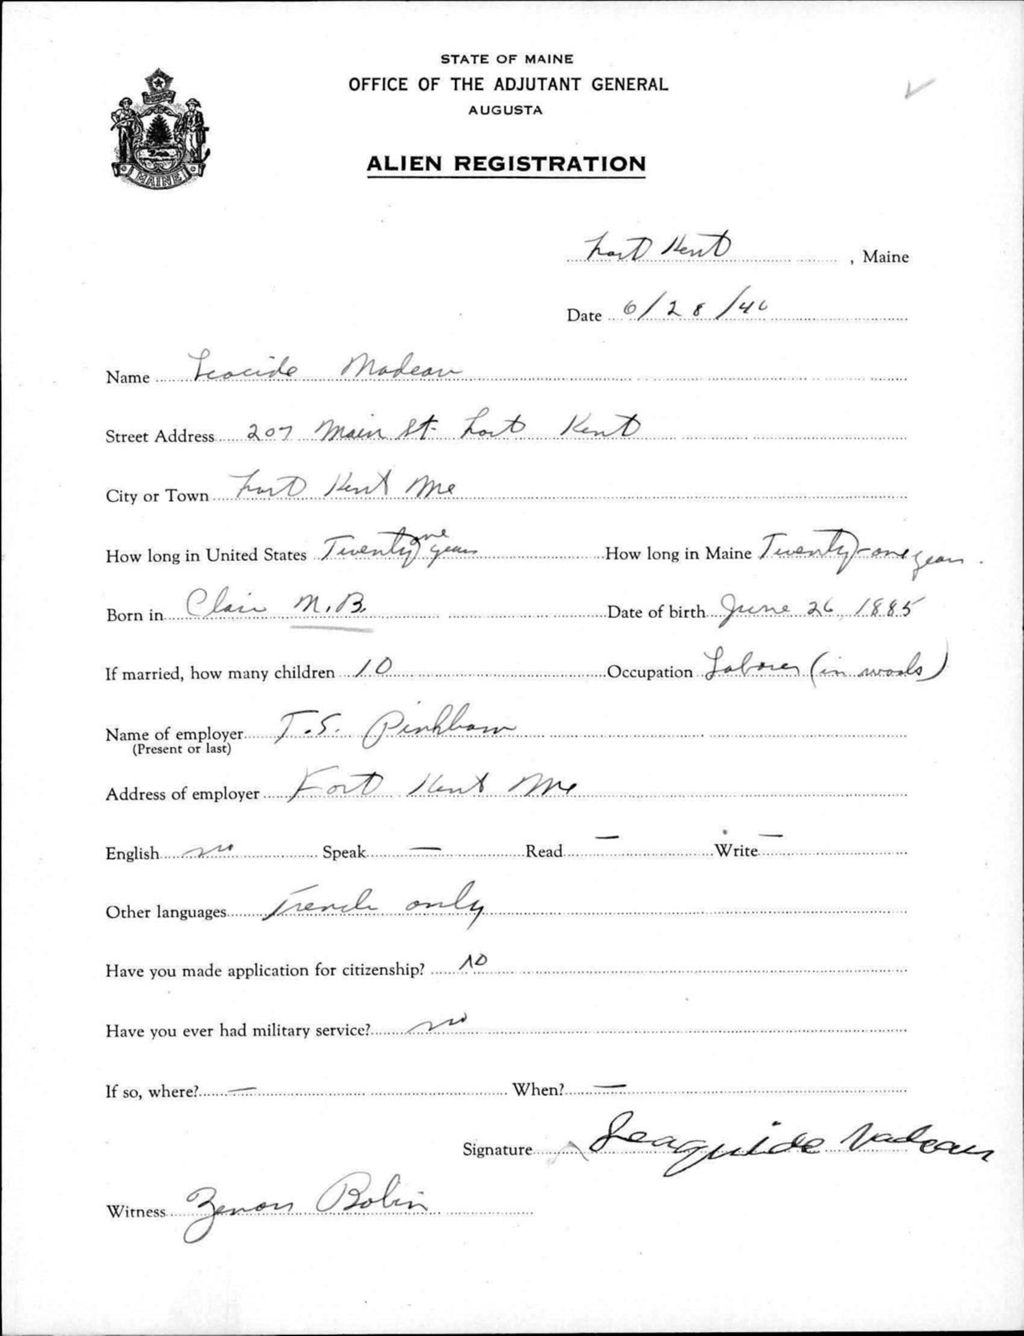 STATE OF MAINE
OFFICE OF THE ADJUTANT GENERAL
AUGUSTA
ALIEN REGISTRATION
MAINE
Fort Kent, Maine
Date 6/28/40
Name Leocide Nadeau
Street Address 207 Main St. Fort Kent
City or Town Fort Kent Me
How long in United States Twenty one years How long in Maine Twenty-one years.
Born in Clair N.B. Date of birth June 26 1885
If married, how many children 10 Occupation Laborer (in woods)
Name of employer T.S. Pinkham
(Present or last)
Address of employer Fort Kent Me
English no Speak — Read — Write —
Other languages French only
Have you made application for citizenship? NO
Have you ever had military service? no
If so, where? — When? —
Signature Leaguide Nadeau
Witness Zenon Bolin